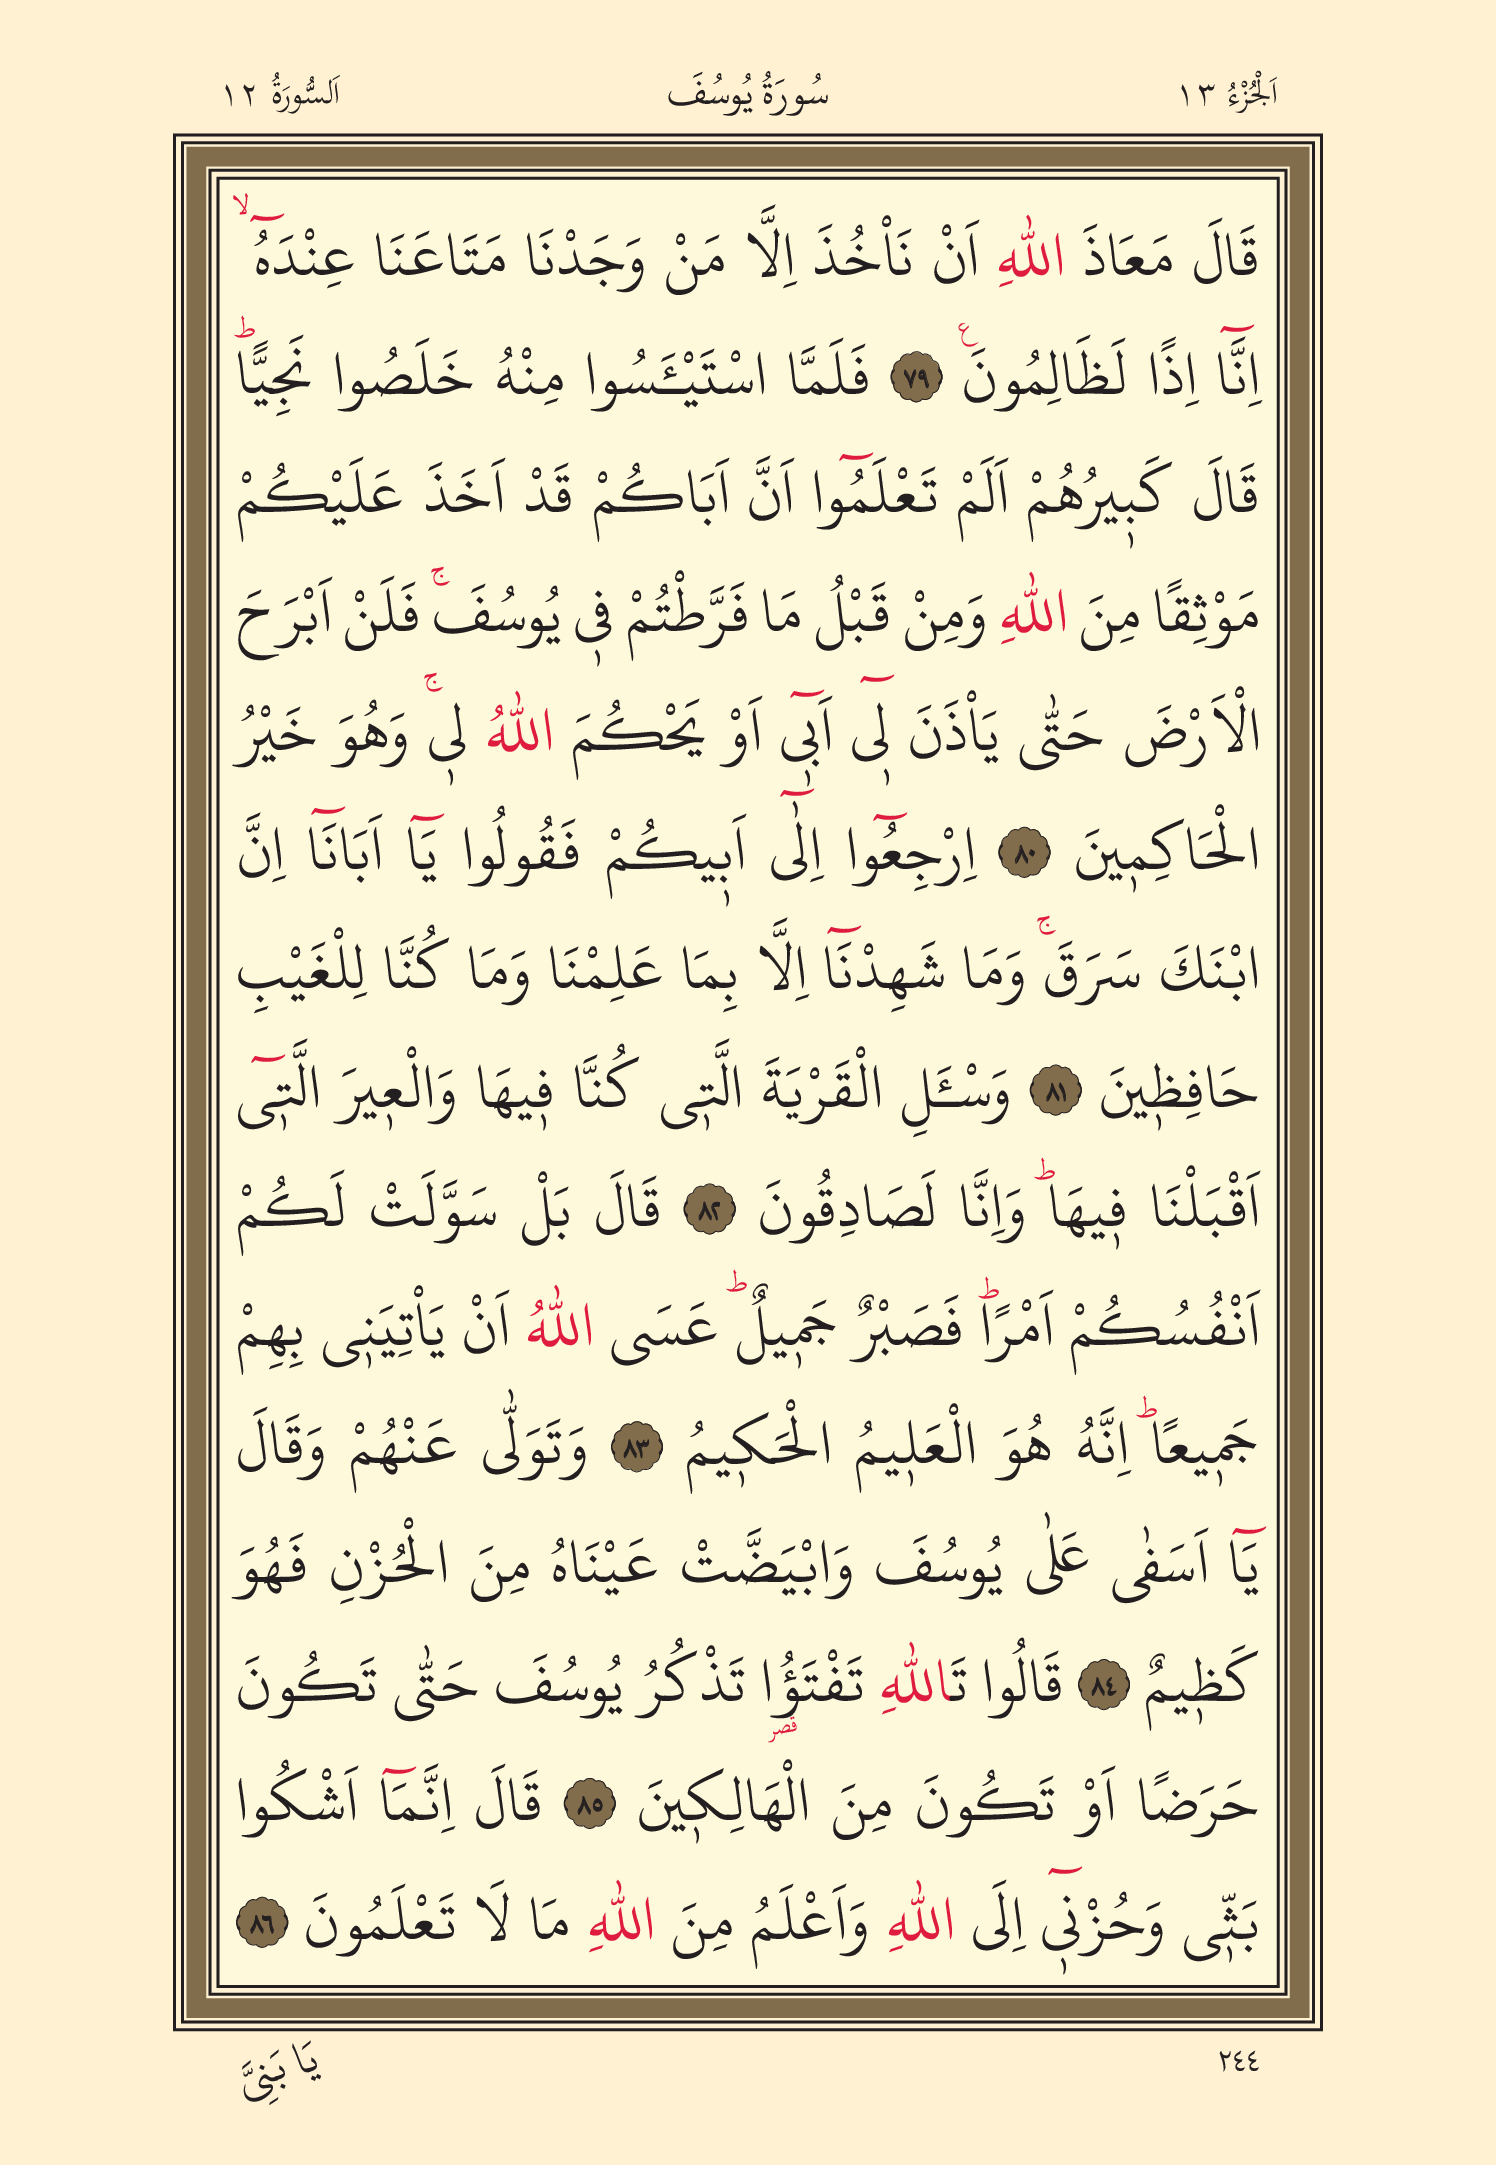 اَلْجُزْءُ ١٣ سُورَةُ يُوسُفَ اَلسُّورَةُ ١٢
قَالَ مَعَاذَ اللّٰهِ اَنْ نَأْخُذَ اِلَّا مَنْ وَجَدْنَا مَتَاعَنَا عِنْدَهُٓ ۙ
اِنَّٓا اِذًا لَظَالِمُونَ ع ٧٩ فَلَمَّا اسْتَيْـَٔسُوا مِنْهُ خَلَصُوا نَجِيًّا ط
قَالَ كَب۪يرُهُمْ اَلَمْ تَعْلَمُٓوا اَنَّ اَبَاكُمْ قَدْ اَخَذَ عَلَيْكُمْ
مَوْثِقًا مِنَ اللّٰهِ وَمِنْ قَبْلُ مَا فَرَّطْتُمْ ف۪ي يُوسُفَ ۚ فَلَنْ اَبْرَحَ
الْاَرْضَ حَتّٰى يَأْذَنَ ل۪ٓي اَب۪ٓي اَوْ يَحْكُمَ اللّٰهُ ل۪ي ۚ وَهُوَ خَيْرُ
الْحَاكِم۪ينَ ٨٠ اِرْجِعُٓوا اِلٰٓى اَب۪يكُمْ فَقُولُوا يَٓا اَبَانَٓا اِنَّ
ابْنَكَ سَرَقَ ۚ وَمَا شَهِدْنَٓا اِلَّا بِمَا عَلِمْنَا وَمَا كُنَّا لِلْغَيْبِ
حَافِظ۪ينَ ٨١ وَسْـَٔلِ الْقَرْيَةَ الَّت۪ي كُنَّا ف۪يهَا وَالْع۪يرَ الَّت۪ٓي
اَقْبَلْنَا ف۪يهَا ط وَاِنَّا لَصَادِقُونَ ٨٢ قَالَ بَلْ سَوَّلَتْ لَكُمْ
اَنْفُسُكُمْ اَمْرًا ط فَصَبْرٌ جَم۪يلٌ ط عَسَى اللّٰهُ اَنْ يَأْتِيَن۪ي بِهِمْ
جَم۪يعًا ط اِنَّهُ هُوَ الْعَل۪يمُ الْحَك۪يمُ ٨٣ وَتَوَلّٰى عَنْهُمْ وَقَالَ
يَٓا اَسَفٰى عَلٰى يُوسُفَ وَابْيَضَّتْ عَيْنَاهُ مِنَ الْحُزْنِ فَهُوَ
كَظ۪يمٌ ٨٤ قَالُوا تَاللّٰهِ تَفْتَؤُا قصر تَذْكُرُ يُوسُفَ حَتّٰى تَكُونَ
حَرَضًا اَوْ تَكُونَ مِنَ الْهَالِك۪ينَ ٨٥ قَالَ اِنَّمَٓا اَشْكُوا
بَثّ۪ي وَحُزْن۪ٓي اِلَى اللّٰهِ وَاَعْلَمُ مِنَ اللّٰهِ مَا لَا تَعْلَمُونَ ٨٦
٢٤٤ يَا بَنِيَّ